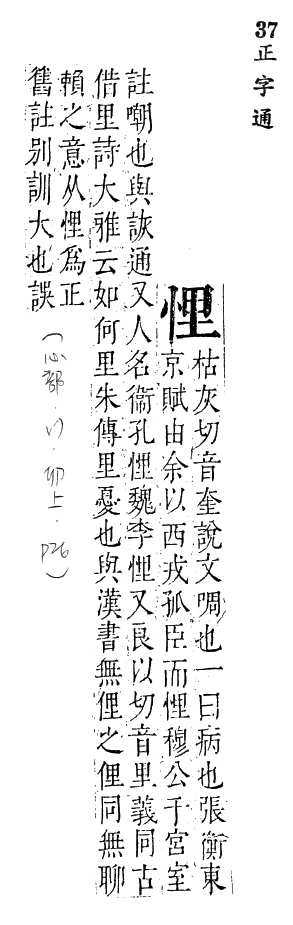 37正字通
悝
枯灰切音奎說文啁也一曰病也張衡東
京賦由余以西戎孤臣而悝穆公于宮室
註嘲也與詼通又人名衞孔悝魏李悝又良以切音里義同古
借里詩大雅云如何里朱傳里憂也與漢書無俚之俚同無聊
賴之意从悝爲正
舊註別訓大也誤
(心部．．卯上．P26)